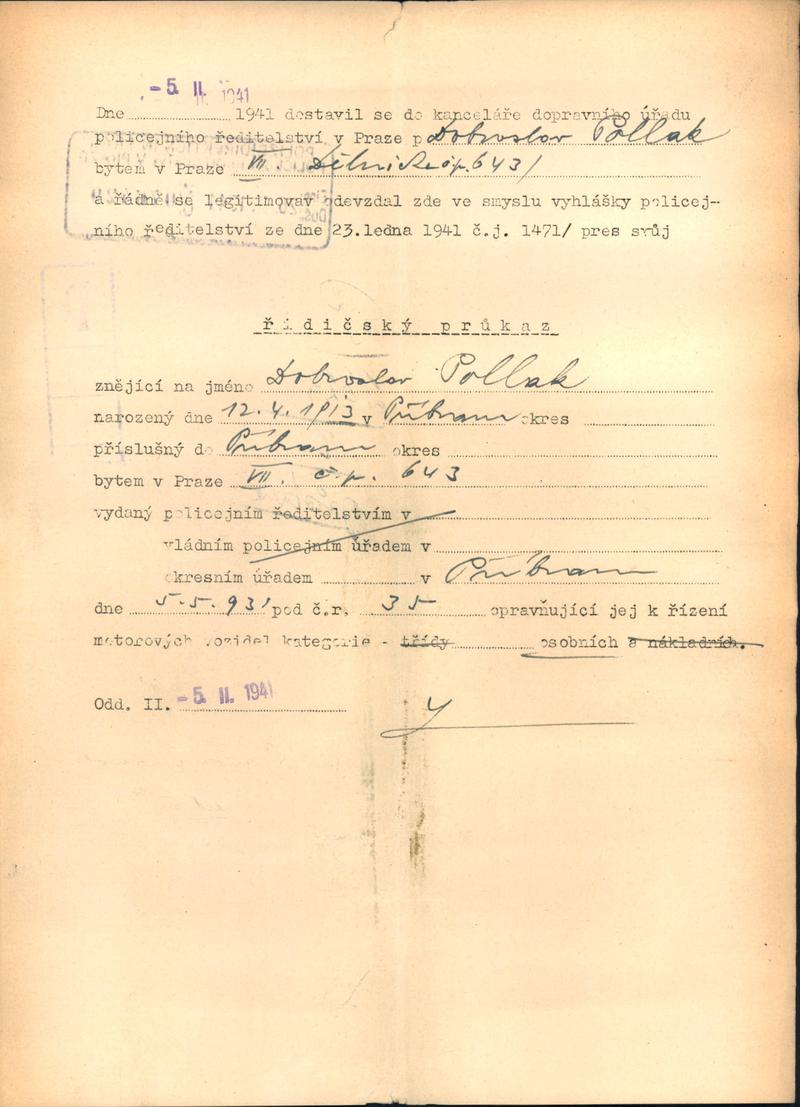 - 5. II. 1941
Dne 1941 dostavil se do kanceláře dopravního úřadu
policejního ředitelství v Praze p Dobroslav Pollak
bytem v Praze VII. Dělnická čp. 643/
a řádně se legitimovav odevzdal zde ve smyslu vyhlášky policej-
ního ředitelství ze dne 23.ledna 1941 č.j. 1471/ pres svůj
řidičský průkaz
znějící na jméno Dobroslav Pollak
narozený dne 12.4.1913 v Příbram okres
příslušný do Příbram okres
bytem v Praze VII. č.p. 643
vydaný policejním ředitelstvím v
vládním policejním úřadem v
okresním úřadem v Příbram
dne 5.5.931 pod č.r. 35 opravňující jej k řízení
motorových vozidel kategorie - třídy osobních a nákladních.
Odd. II. - 5. II. 1941